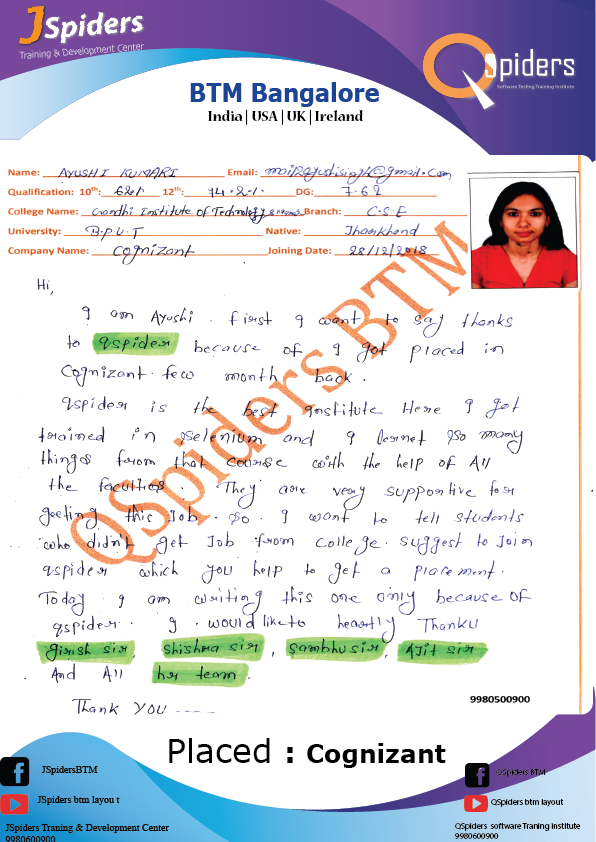 JSpiders
Training & Development Center
QSpiders
Software Testing Training Institute
BTM Bangalore
India|USA|UK|Ireland
Name: AYUSHI KUMARI Email: mail2ayushisingh@gmail.com
Qualification: 10th: 62% 12th: 74.2% DG: 7.62
College Name: Gandhi Institute of Technology & Branch: C.S.E
University: B.P.U.T Native: Jharkhand
Company Name: Cognizant Joining Date: 28/12/2018
Hi,
I am Ayushi. First I want to say thanks
to qspider because of I got placed in
Cognizant. few month back.
qspider is the best institute Here I got
trained in Selenium and I lernet so many
things from that course with the help of All
the faculties. They are very supportive for
geeting this Job. So. I want to tell students
who didn't get Job from college. suggest to Join
qspider which you help to get a placement.
Today I am writing this one only because of
qspider. I would like to heartly Thanku
girish sir, Shishna sir, Sambhu sir, Ajit sir
And All hr team.
Thank YOU ----
QSpiders BTM
9980500900
Placed : Cognizant
JSpidersBTM
JSpiders btm layou t
JSpiders Traning & Development Center
9980600900
QSpiders BTM
QSpiders btm layout
QSpiders software Traning institute
9980600900